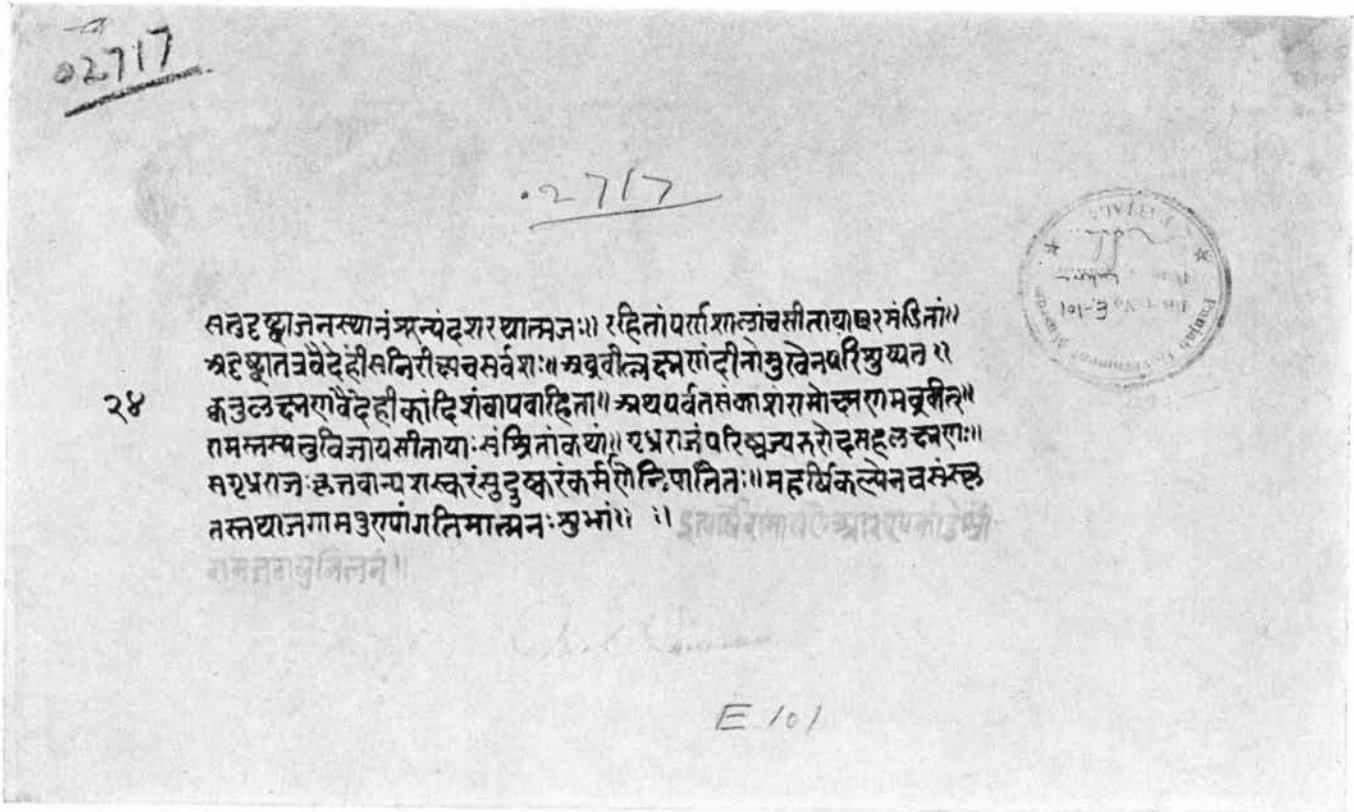 02717
.02717
सतुदृष्ट्वाजनस्थानंशून्यंदशरथात्मजः॥ रहितांपर्णशालांचसीताया
अदृष्ट्वातत्रवैदेहींसन्निरीक्ष्यचसर्वशः॥ अब्रवील्लक्ष्मणंदीनोमुखेनपरिशुष्यता॥
२४ क्वनुलक्ष्मणवैदेहीकांदिशंवापवाहिता॥ अथपर्वतसंकाशंरामोलक्ष्मणमब्रवीत्॥
रामस्तस्यतुविज्ञायसीतायाःसंश्रितांकथां॥ गृध्रराजंपरिष्वज्यरुरोदसहलक्ष्मणः॥
सगृध्रराजःकृतवान्यशस्करंसुदुष्करंकर्मरणेनिपातितः॥ महर्षिकल्पेनचसंस्कृ
तस्तथाजगामपुण्यांगतिमात्मनःशुभां॥ ॥ इत्यार्षेरामायणेआरण्यकांडेश्री
E 101